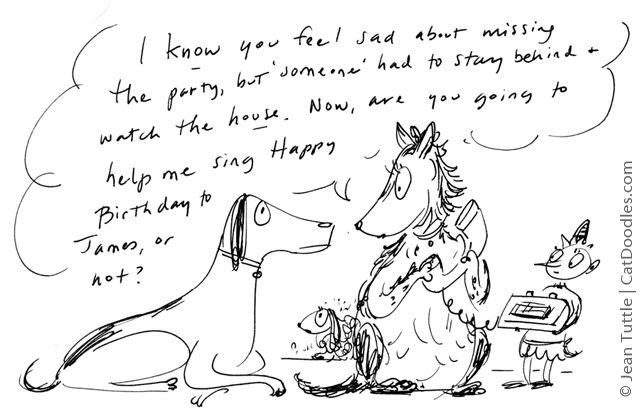 I know you feel sad about missing
the party, but 'someone' had to stay behind +
watch the house. Now, are you going to
help me sing Happy
Birthday to
James, or
not?
© Jean Tuttle | CatDoodles.com